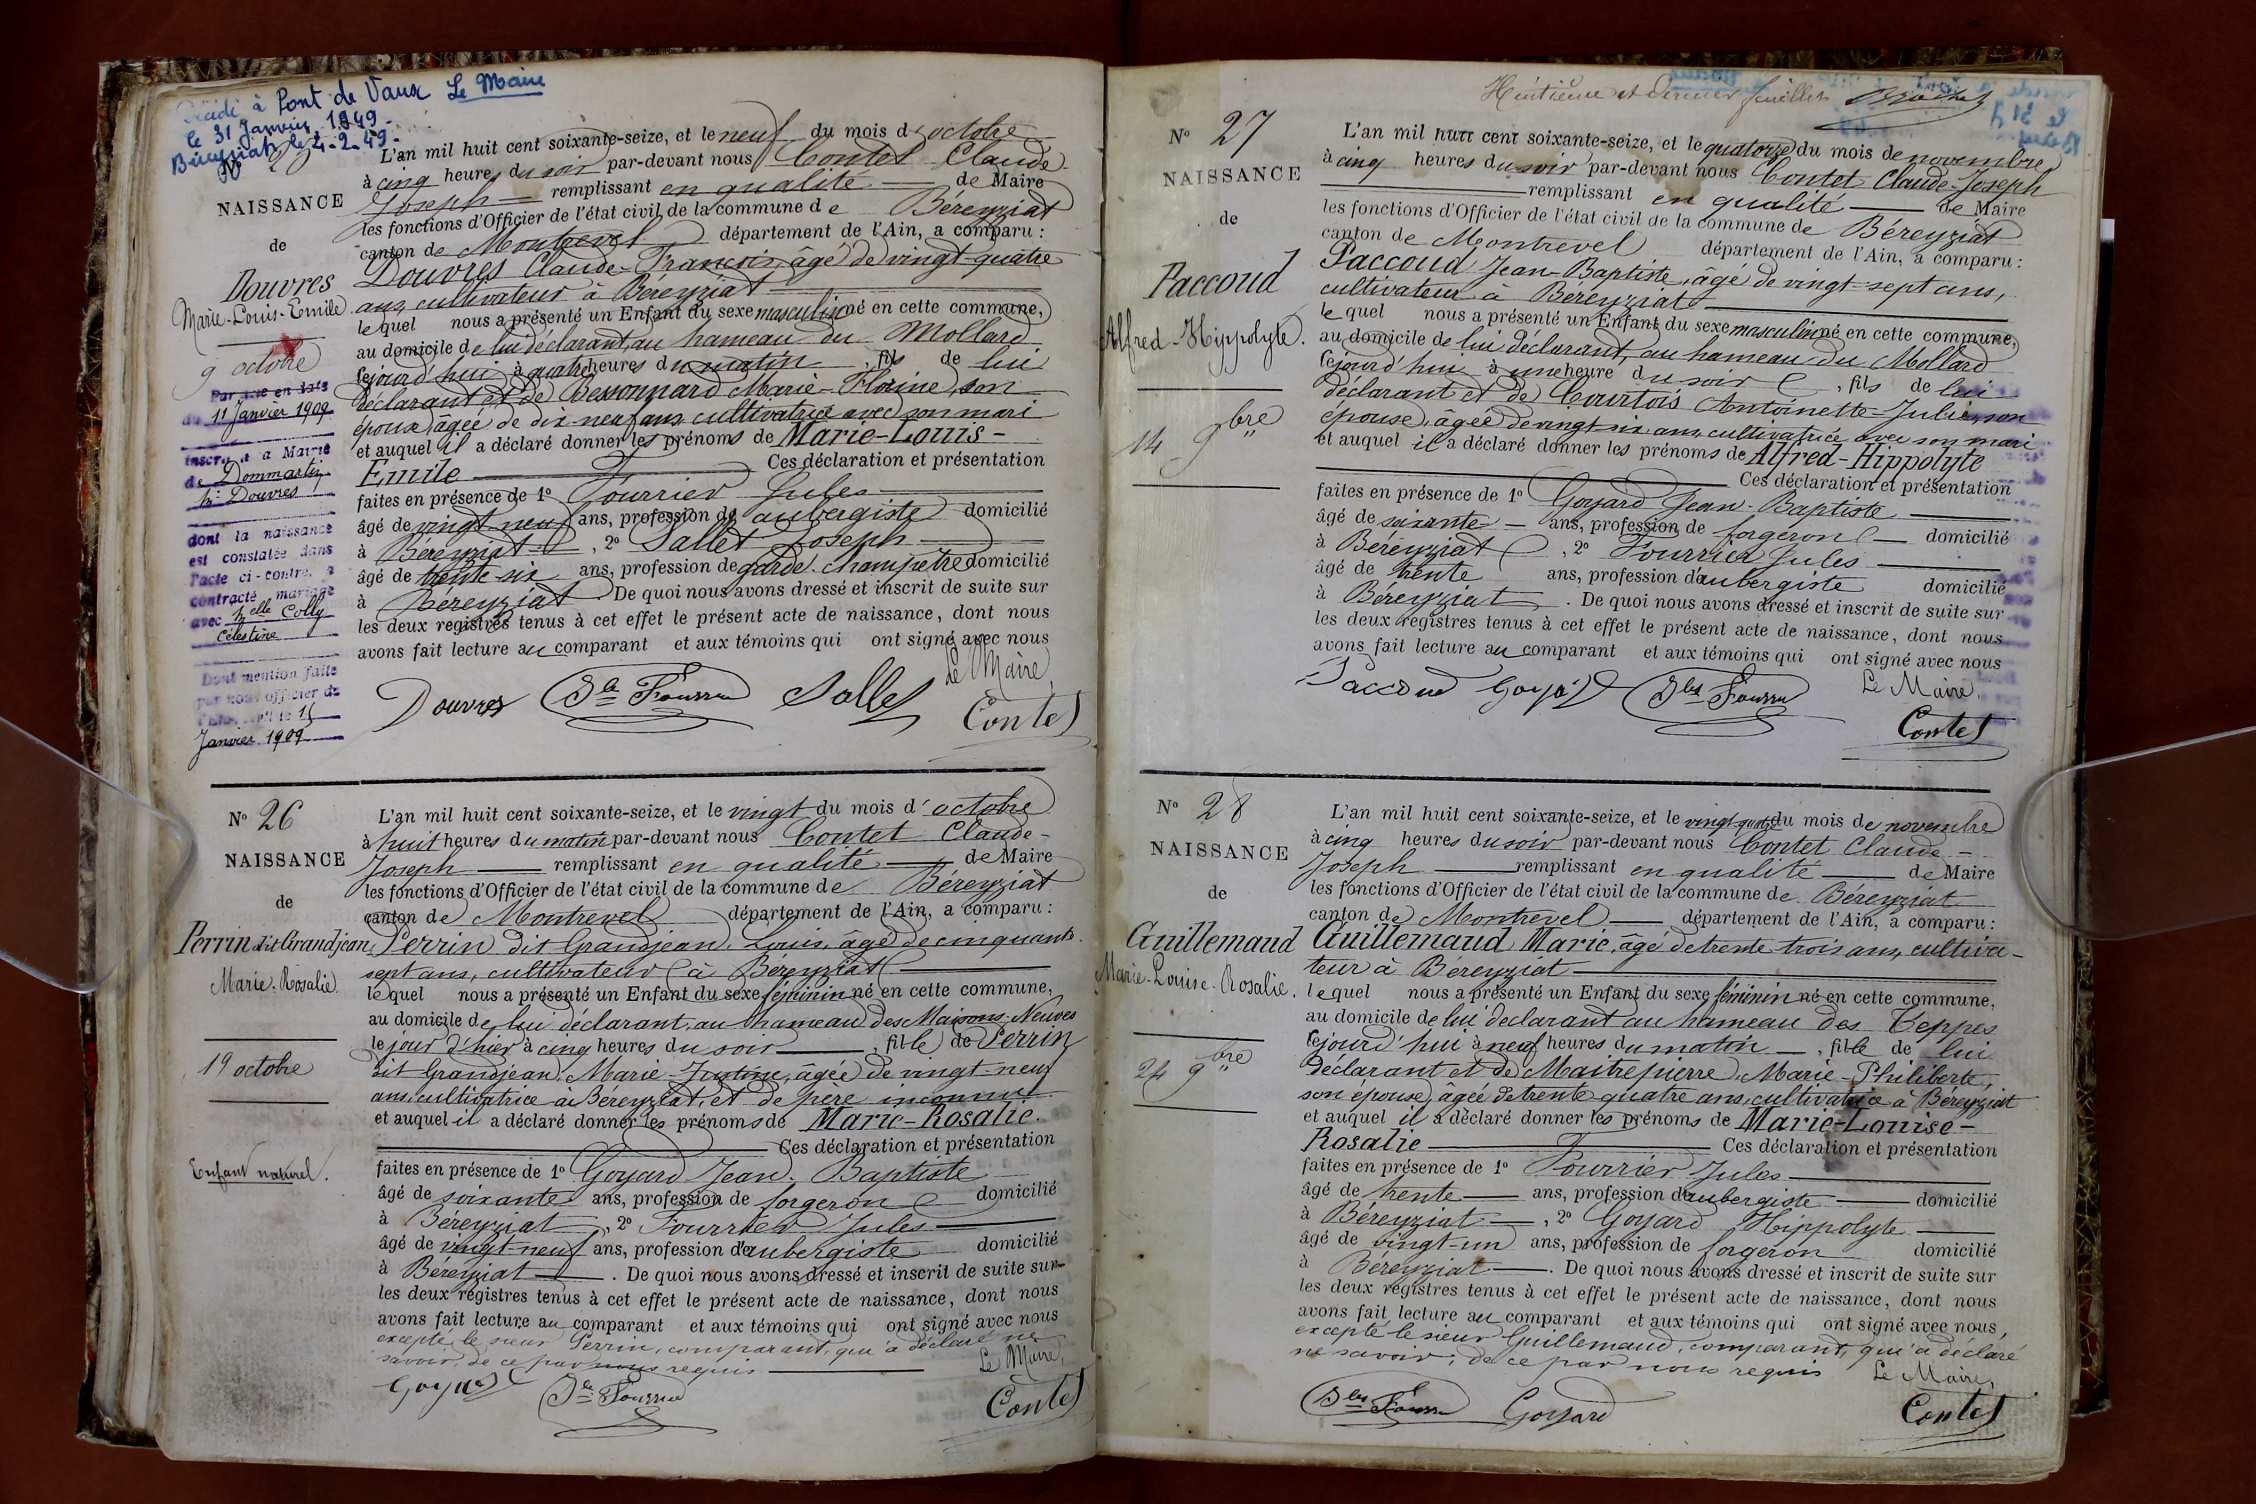 à Pont de Vaux Le Maire
le 31 Janvier 1949.
Béreyziat le 4-2-49.
No
NAISSANCE
de
Douvres
Marie-Louis-Emile
9 octobre
Par acte en date
du 11 Janvier 1909
inscrit à la Mairie
de Dommartin
Mr Douvres
dont la naissance
est constatée dans
l'acte ci-contre, a
contracté mariage
avec Melle Colly
Célestine
Dont mention faite
par nous officier de
l'état civil le 15
Janvier 1909
L'an mil huit cent soixante-seize, et le neuf du mois d'octobre
à cinq heures du soir par-devant nous Contet Claude-
Joseph remplissant en qualité de Maire
les fonctions d'Officier de l'état civil de la commune de Béreyziat
canton de Montrevel département de l'Ain, a comparu :
Douvres Claude-François, âgé de vingt-quatre
ans, cultivateur à Béreyziat
lequel nous a présenté un Enfant du sexe masculin né en cette commune,
au domicile de lui déclarant, au hameau du Mollard
cejourd'hui à quatre heures du matin, fils de lui
déclarant et de Bessonnard Marie-Florine, son
épouse, âgée de dix-neuf ans cultivatrice avec son mari
et auquel il a déclaré donner les prénoms de Marie-Louis-
Emile Ces déclaration et présentation
faites en présence de 1o Fourrier Jules
âgé de vingt-neuf ans, profession de aubergiste domicilié
à Béreyziat, 2o Sallet Joseph
âgé de trente-six ans, profession de garde-champêtre domicilié
à Béreyziat. De quoi nous avons dressé et inscrit de suite sur
les deux registres tenus à cet effet le présent acte de naissance, dont nous
avons fait lecture au comparant et aux témoins qui ont signé avec nous
Le Maire,
Douvres Jles Fourrier Sallet Contet
No 26
NAISSANCE
de
Perrin dit Grandjean
Marie-Rosalie
19 octobre
Enfant naturel.
L'an mil huit cent soixante-seize, et le vingt du mois d'octobre
à huit heures du matin par-devant nous Contet Claude-
Joseph remplissant en qualité de Maire
les fonctions d'Officier de l'état civil de la commune de Béreyziat
canton de Montrevel département de l'Ain, a comparu :
Perrin dit Grandjean, Louis, âgé de cinquante-
sept ans, cultivateur à Béreyziat
lequel nous a présenté un Enfant du sexe féminin né en cette commune,
au domicile de lui déclarant, au hameau des Maisons-Neuves
le jour d'hier à cinq heures du soir, fille de Perrin
dit Grandjean, Marie-Justine, âgée de vingt-neuf
ans, cultivatrice à Béreyziat, et de père inconnu
et auquel il a déclaré donner les prénoms de Marie-Rosalie.
Ces déclaration et présentation
faites en présence de 1o Goyard Jean-Baptiste
âgé de soixante ans, profession de forgeron domicilié
à Béreyziat, 2o Fourrier Jules
âgé de vingt-neuf ans, profession d'aubergiste domicilié
à Béreyziat. De quoi nous avons dressé et inscrit de suite sur
les deux registres tenus à cet effet le présent acte de naissance, dont nous
avons fait lecture au comparant et aux témoins qui ont signé avec nous
excepté le sieur Perrin, comparant, qui a déclaré ne
savoir, de ce par nous requis
Le Maire,
Goyard Jles Fourrier Contet
Huitième et dernier feuillet
No 27
NAISSANCE
de
Paccoud
Alfred-Hippolyte.
14 9bre
L'an mil huit cent soixante-seize, et le quatorze du mois de novembre
à cinq heures du soir par-devant nous Contet Claude-Joseph
remplissant en qualité de Maire
les fonctions d'Officier de l'état civil de la commune de Béreyziat
canton de Montrevel département de l'Ain, a comparu :
Paccoud Jean-Baptiste, âgé de vingt-sept ans,
cultivateur à Béreyziat
lequel nous a présenté un Enfant du sexe masculin né en cette commune,
au domicile de lui déclarant, au hameau du Mollard
cejourd'hui à une heure du soir, fils de lui
déclarant et de Courtois Antoinette-Julie, son
épouse, âgée de vingt-six ans, cultivatrice avec son mari
et auquel il a déclaré donner les prénoms de Alfred-Hippolyte
Ces déclaration et présentation
faites en présence de 1o Goyard Jean-Baptiste
âgé de soixante ans, profession de forgeron domicilié
à Béreyziat, 2o Fourrier Jules
âgé de trente ans, profession d'aubergiste domicilié
à Béreyziat. De quoi nous avons dressé et inscrit de suite sur
les deux registres tenus à cet effet le présent acte de naissance, dont nous
avons fait lecture au comparant et aux témoins qui ont signé avec nous
Paccoud Goyard Jles Fourrier Le Maire,
Contet
No 28
NAISSANCE
de
Guillemaud
Marie-Louise-Rosalie.
24 9bre
L'an mil huit cent soixante-seize, et le vingt-quatre du mois de novembre
à cinq heures du soir par-devant nous Contet Claude-
Joseph remplissant en qualité de Maire
les fonctions d'Officier de l'état civil de la commune de Béreyziat
canton de Montrevel département de l'Ain, a comparu :
Guillemaud Marie, âgé de trente-trois ans, cultiva-
teur à Béreyziat
lequel nous a présenté un Enfant du sexe féminin né en cette commune,
au domicile de lui déclarant au hameau des Teppes
cejourd'hui à neuf heures du matin, fille de lui
déclarant et de Maitrepierre, Marie-Philiberte,
son épouse, âgée de trente-quatre ans, cultivatrice à Béreyziat
et auquel il a déclaré donner les prénoms de Marie-Louise-
Rosalie Ces déclaration et présentation
faites en présence de 1o Fourrier Jules
âgé de trente ans, profession d'aubergiste domicilié
à Béreyziat, 2o Goyard Hippolyte
âgé de vingt-un ans, profession de forgeron domicilié
à Béreyziat. De quoi nous avons dressé et inscrit de suite sur
les deux registres tenus à cet effet le présent acte de naissance, dont nous
avons fait lecture au comparant et aux témoins qui ont signé avec nous,
excepté le sieur Guillemaud, comparant, qui a déclaré
ne savoir, de ce par nous requis Le Maire,
Jles Fourrier Goyard Contet